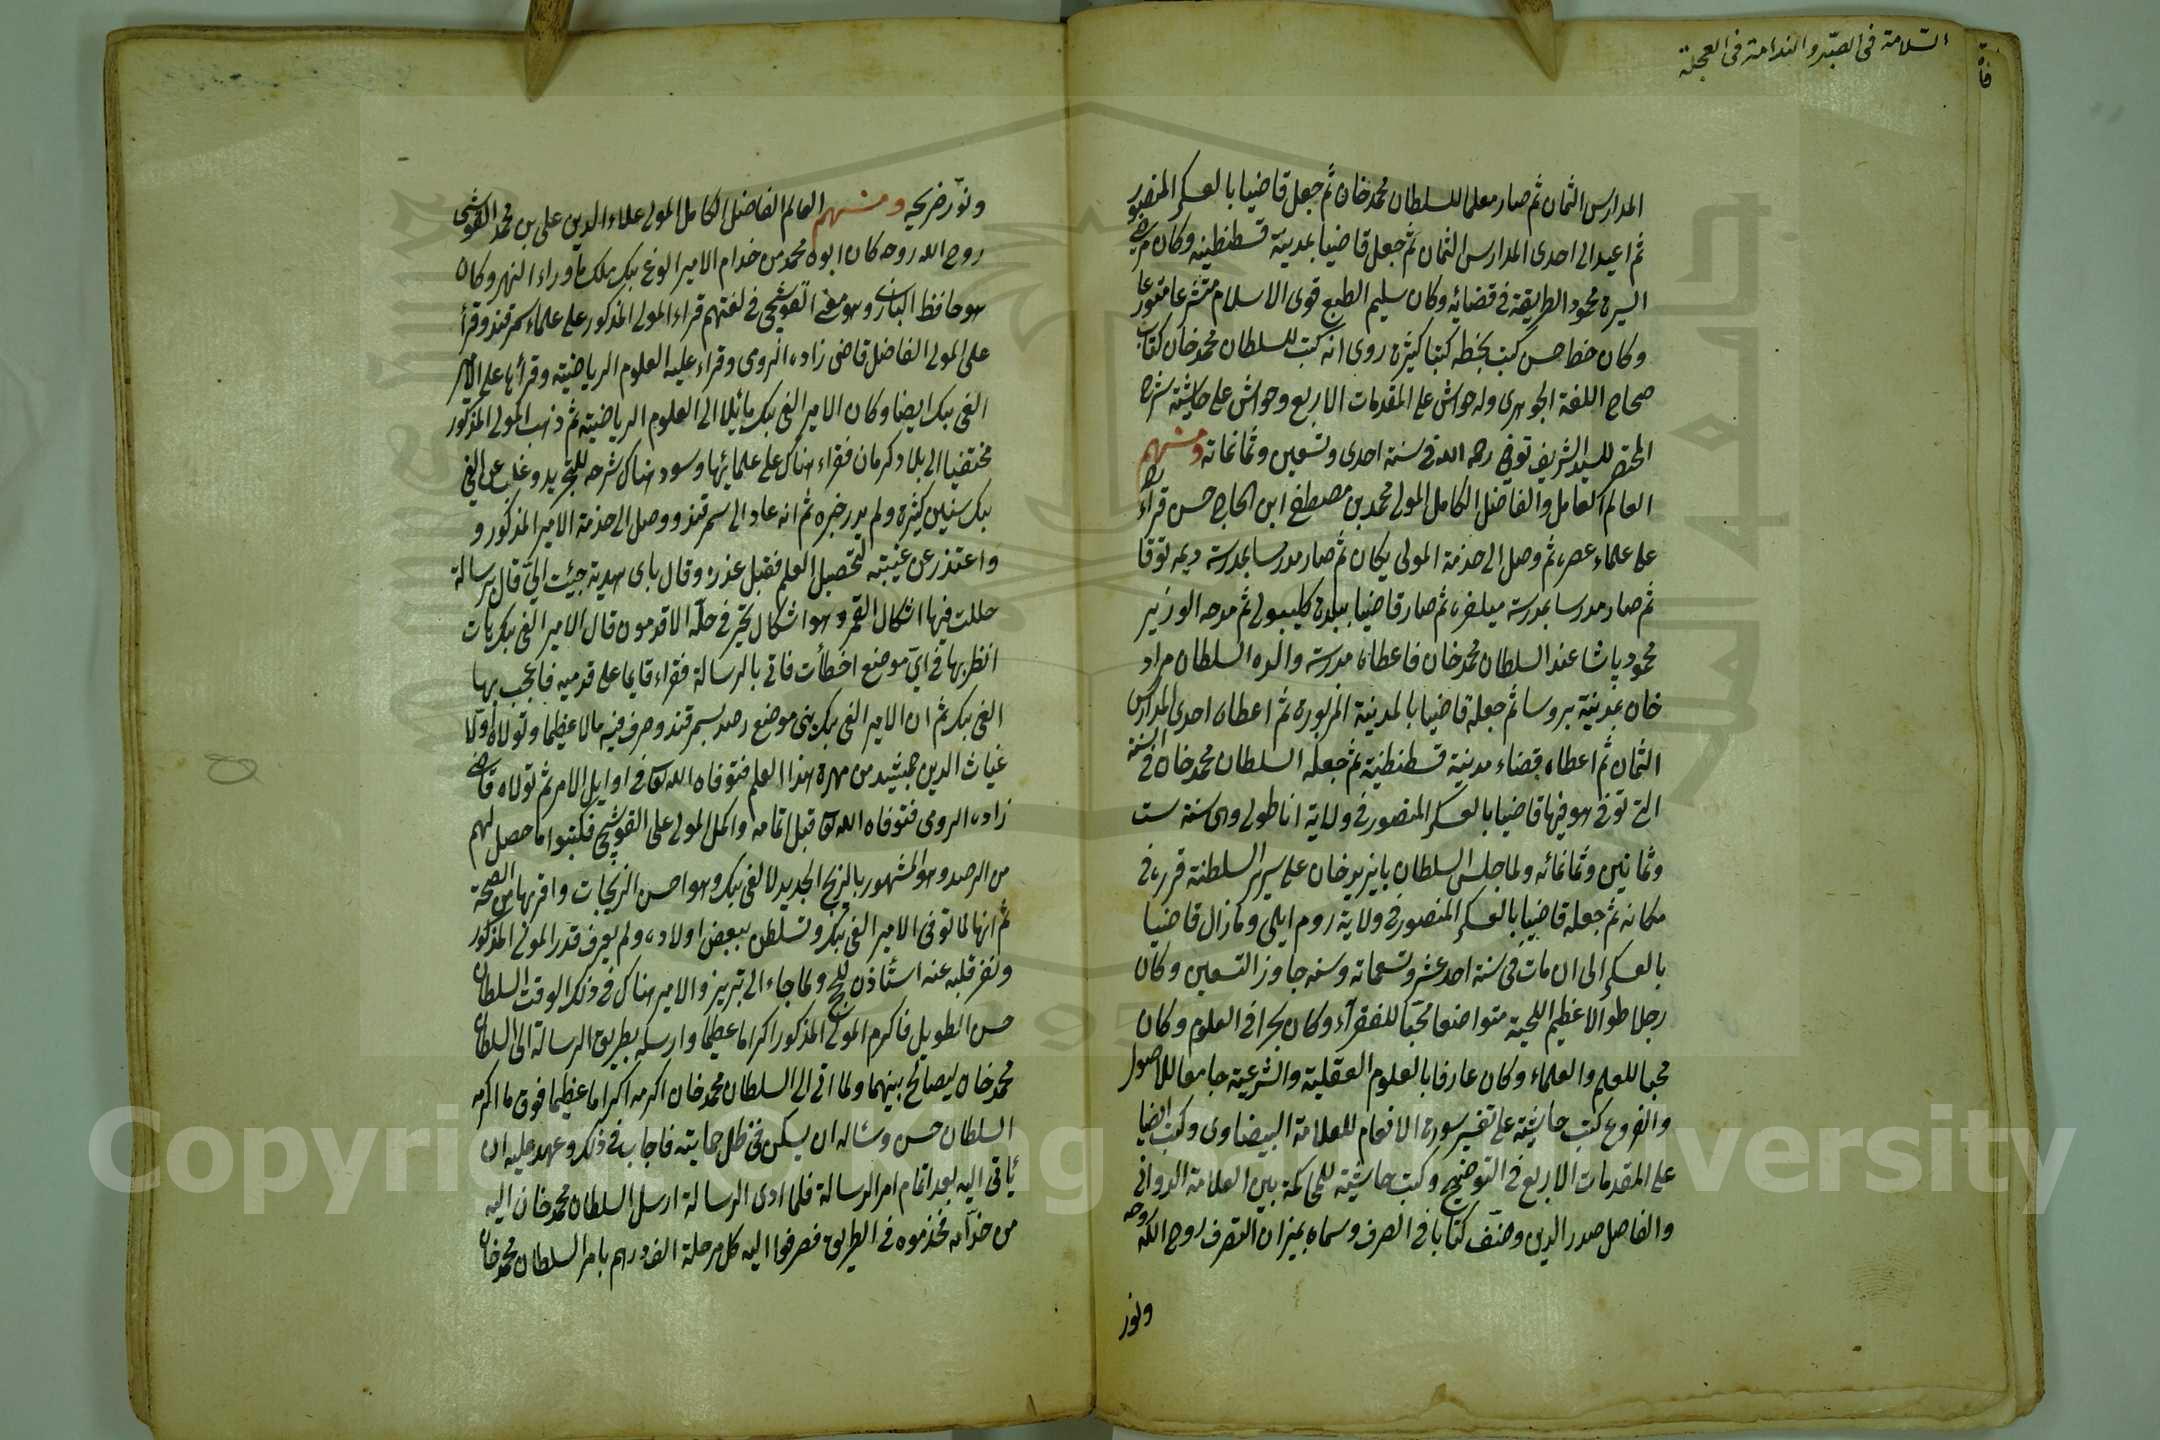 السلامة فى الصبر والندامة فى العجلة
المدارس الثمان ثم صار معلما للسلطان محمد خان ثم جعل قاضيا بالعسكر المنصور
ثم اعيد الى احدى المدارس الثمان ثم جعل قاضيا بمدينة قسطنطينه وكان مرضى
السيرة محمود الطريقة فى قضائه وكان سليم الطبع قوى الاسلام متشرعا متورعا
وكان خطا حسن كتب بخطه كتبا كثيرة روى انه كتب للسلطان محمد خان كتاب
صحاح اللغة الجوهرى وله حواش على المقدمات الاربع وحواش على حاشية شرح
المختصر للسيد الشريف توفى رحمه الله فى سنة احدى وتسعين وثمانمائه ومنهم
العالم العامل والفاضل الكامل المولى محمد بن مصطفى ابن الحاج حسن قرأ ره
على علماء عصره ثم وصل الى خدمة المولى يكان ثم صار مدرسا بمدرسة ديمه توقا
ثم صار مدرسا بمدرسة ميلغره ثم صار قاضيا ببلدة كليبولى ثم مدحه الوزير
محمود پاشا عند السلطان محمد خان فاعطاه مدرسة والده السلطان مراد
خان بمدينة بروسا ثم جعله قاضيا بالمدينة المزبورة ثم اعطاه احدى المدارس
الثمان ثم اعطاه قضاء مدينة قسطنطنية ثم جعله السلطان محمد خان فى السنة
التى توفى هو فيها قاضيا بالعسكر المنصور فى ولاية اناطولى وهى سنة ست
وثمانين وثمانمائه ولما جلس السلطان بايزيد خان على سرير السلطنة قرره فى
مكانه ثم جعله قاضيا بالعسكر المنصور فى ولاية روم ايلى وما زال قاضيا
بالعسكر الى ان مات فى سنة احد عشر وتسعمائه وسنه جاوز التسعين وكان
رجلا طوالا عظيم اللحية متواضعا محبا للفقرآء وكان بحرا فى العلوم وكان
محبا للعلم والعلماء وكان عارفا بالعلوم العقلية والشرعية جامعا للاصول
والفروع كتب حاشية على تفسير سورة الانعام للعلامة البيضاوى وكتب ايضا
على المقدمات الاربع فى التوضيح وكتب حاشية للمحاكمة بين العلامة الدوانى
والفاضل صدر الدين وصنف كتابا فى الصرف وسماه بميزان التصرف روح الله روحه
ونور
ونور ضريحه ومنهم العالم الفاضل الكامل المولى علاء الدين على بن محمد القوشجى
روح الله روحه كان ابوه محمد من خدام الامير الوغ بيك ملك ما وراء النهر وكان
هو حافظ البازى وهو معنى القوشجى فى لغتهم قراء المولى المذكور على علماء سمرقند وقرأ
على المولى الفاضل قاضى زاده الرومى وقراء عليه العلوم الرياضية وقرأها على الامير
الغى بيك ايضا وكان الامير الغى بيك مائيلا الى العلوم الرياضية ثم ذهب المولى المذكور
مختفيا الى بلاد كرمان فقراء هناك على علمائها وسود هناك شرحه للتجريد وغاب عن الغى
بيك سنين كثيرة ولم يدر خبره ثم انه عاد الى سمرقند ووصل الى خدمة الامير المذكور و
واعتذر عن غيبته لتحصيل العلم فقبل عذره وقال باى هدية جيئت الىّ قال برسالة
حللت فيها اشكال القمر وهو اشكال تحير فى حله الاقدمون قال الامير الغى بيك هات
انظر بها فى اى موضع اخطأت فاتى بالرسالة فقراء قايما على قدميه فاعجب بها
الغى بيك ثم ان الامير الغى بيك بنى موضع رصد بسمرقند وصرف فيه مالا عظيما وتولاه أولا
غياث الدين جمشيد من مهرة هذا العلم فتوفاه الله تعا فى اوايل الامر ثم تولاه قاضى
زاده الرومى فتوفاه الله تعا قبل اتمامه واكمل المولى على القوشجى فكتبوا ما حصل لهم
من الرصد وهو المشهور بالزيج الجديد لالغى بيك وهو احسن الزيجات واقربها من الصحة
ثم انها لما توفى الامير الغى بيك وتسلطن بعض اولاده ولم يعرف قدر المولى المذكور
ونفر قلبه عنه استأذن للحج ولما جاء الى تبريز والامير هناك فى ذلك الوقت السلطان
حسن الطويل فاكرم المولى المذكور اكراما عظيما وارسله بطريق الرسالة الى السلطان
محمد خان ليصالح بينهما ولما اتى الى السلطان محمد خان اكرمه اكراما عظيما فوق ما اكرمه
السلطان حسن وسئاله ان يسكن فى ظل حمايته فاجاب فى ذلك وعهد عليه ان
يأتى اليه بعد اتمام امر الرسالة فلما ادى الرسالة ارسل السلطان محمد خان اليه
من خدامه فخدموه فى الطريق فصرفوا اليه كل مرحلة الف درهم بامر السلطان محمد خان
Copyright © King Saud University